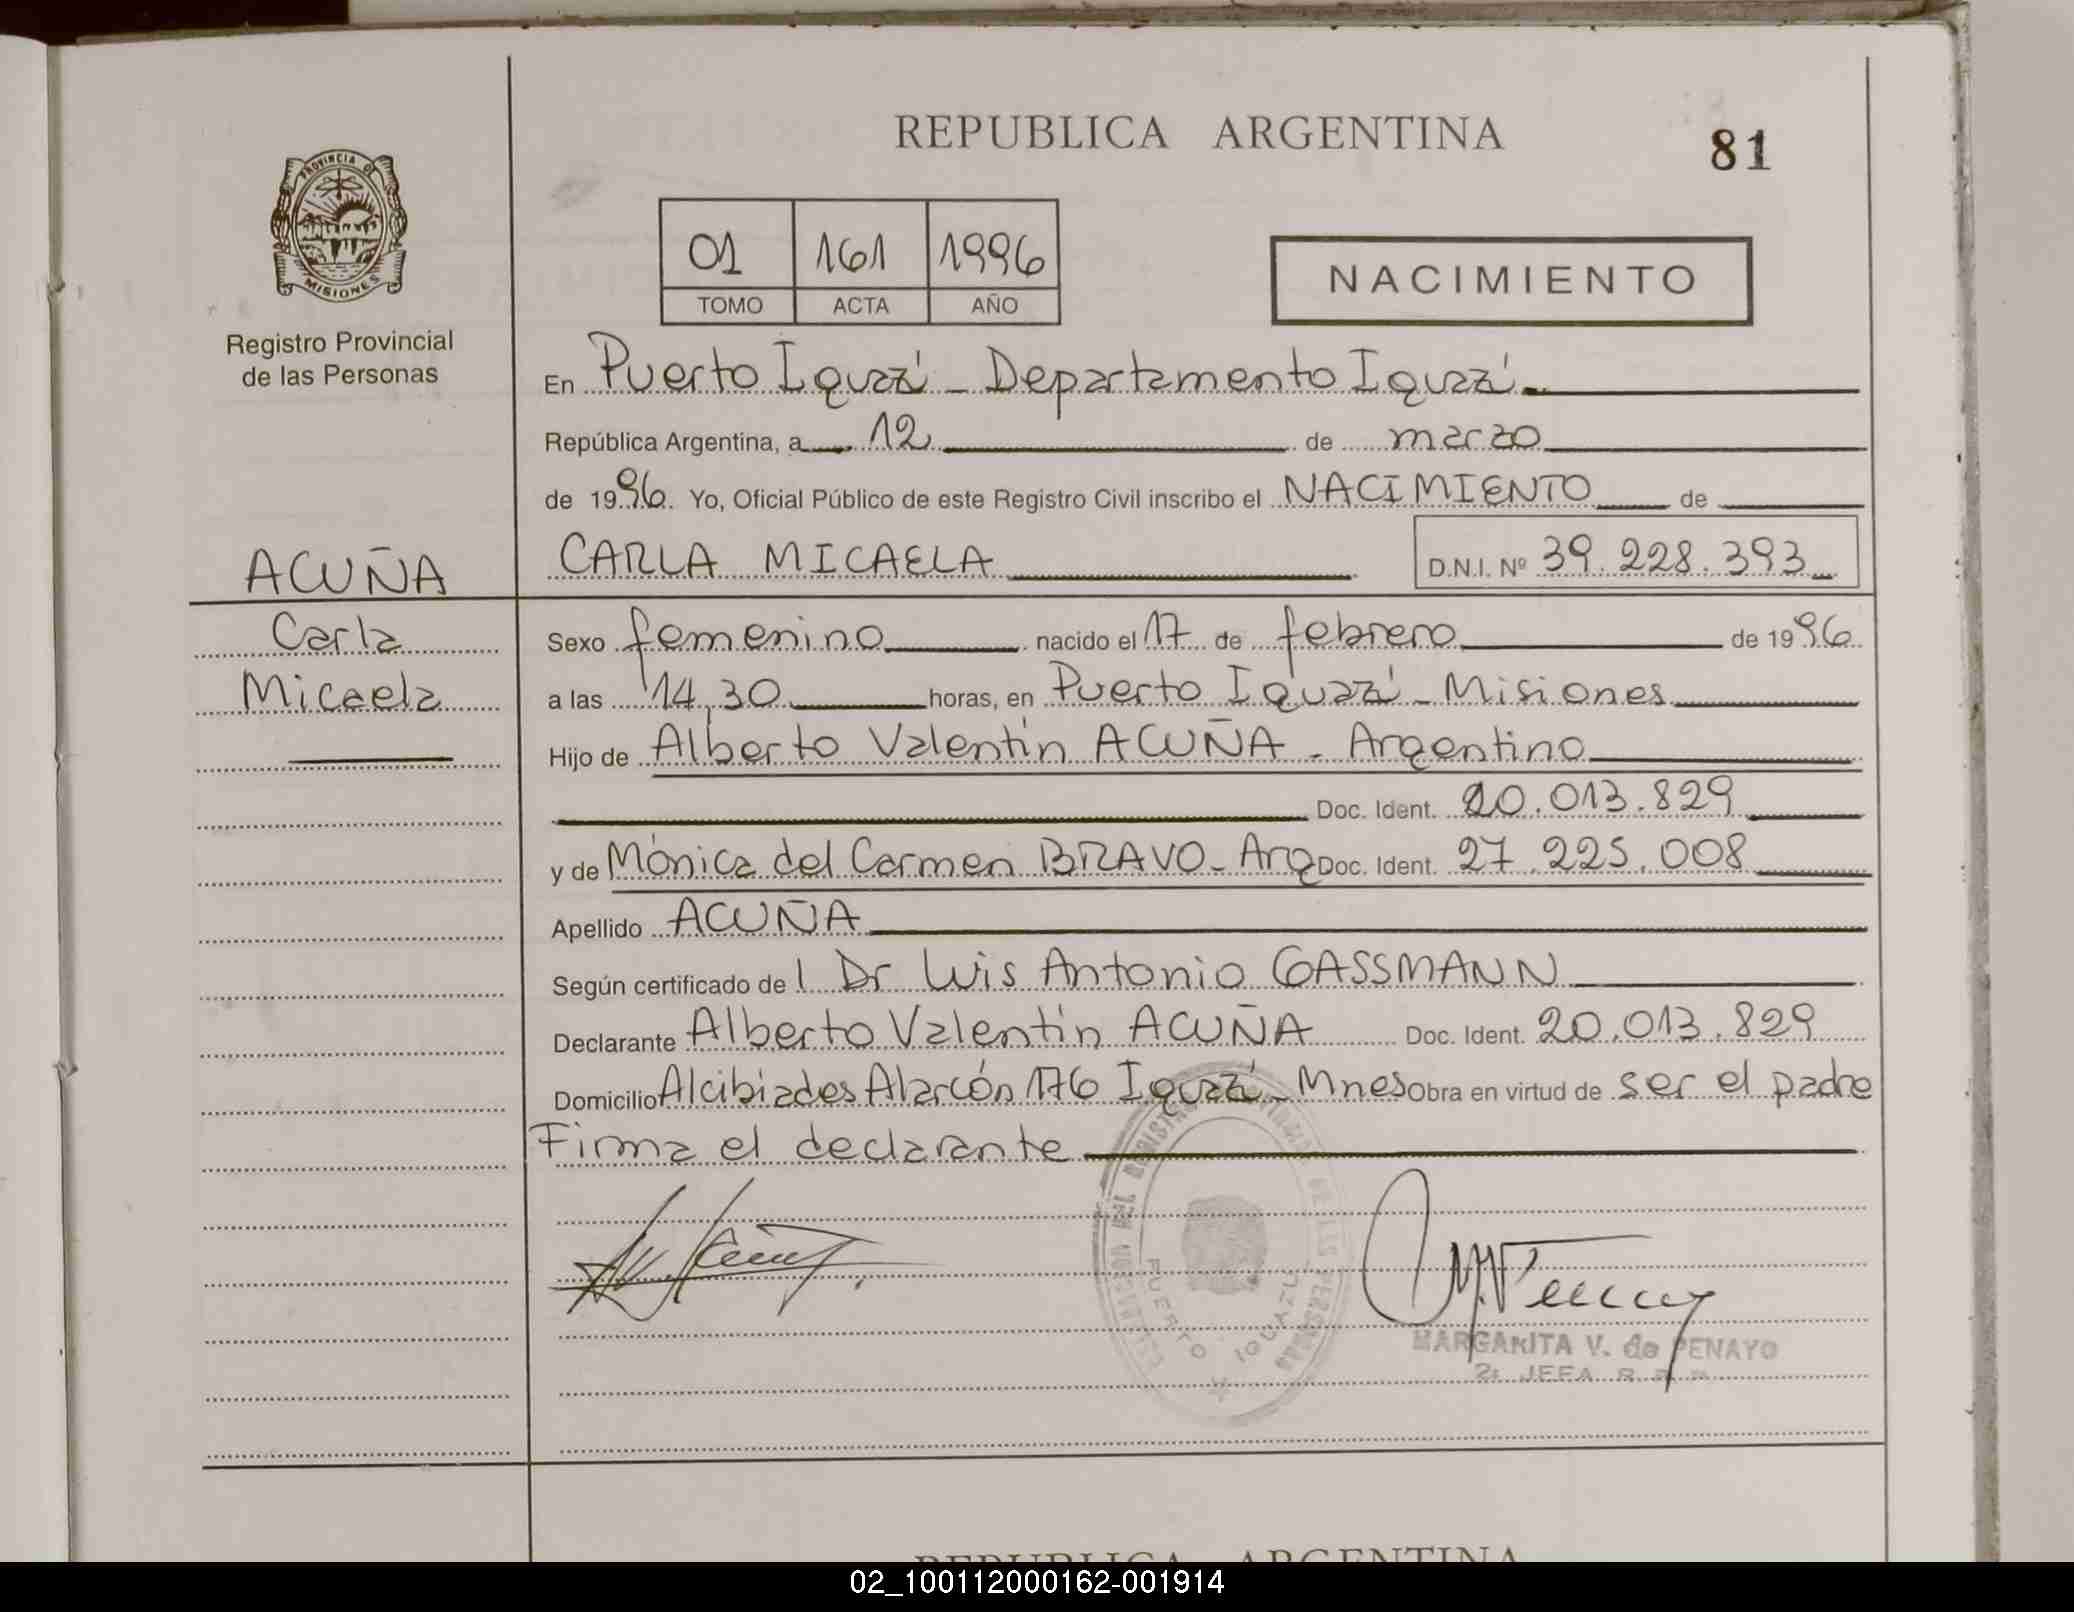 REPUBLICA ARGENTINA
81
PROVINCIA DE
MISIONES
Registro Provincial
de las Personas
01 161 1996
TOMO ACTA AÑO
NACIMIENTO
En Puerto Iguazú - Departamento Iguazú -
República Argentina, a 12 de marzo
de 1996. Yo, Oficial Público de este Registro Civil inscribo el NACIMIENTO de
ACUÑA
CARLA MICAELA
D.N.I. Nº 39.228.393
Carla
Micaela
Sexo femenino nacido el 17 de febrero de 1996
a las 14,30 horas, en Puerto Iguazú - Misiones
Hijo de Alberto Valentín ACUÑA - Argentino
Doc. Ident. 20.013.829
y de Mónica del Carmen BRAVO - Arg Doc. Ident. 27.225.008
Apellido ACUÑA
Según certificado de l Dr Luis Antonio GASSMANN
Declarante Alberto Valentín ACUÑA Doc. Ident. 20.013.829
Domicilio Alcibiades Alarcón 176 Iguazú - Mnes Obra en virtud de ser el padre
Firma el declarante
PUERTO IGUAZU
MARGARITA V. de PENAYO
JEFA
REPUBLICA ARGENTINA
02_100112000162-001914